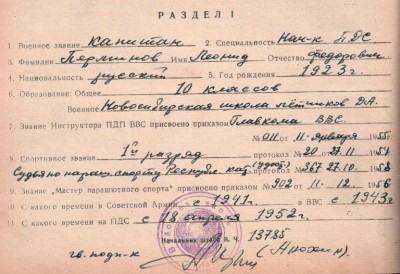 РАЗДЕЛ I
1. Военное звание капитан 2. Специальность Нач-к ПДС
3. Фамилия Перминов Имя Леонид Отчество Федорович
4. Национальность русский 5. Год рождения 1923 г.
6. Образование: Общее 10 классов
Военное Новосибирская школа лётчиков Д.А.
7. Звание Инструктора ПДП ВВС присвоено приказом Главкома ВВС
№ 011 11 января 1955 г.
8. Спортивное звание 1й разряд протокол 20 27-11 1954
Судья по параш. спорту Республ. кат. (судей) протокол № 367 27.10 1958
9. Звание "Мастер парашютного спорта" присвоено приказом № 902 11-12 1956
С какого времени в Советской Армии с 1941 г. в ВВС с 1943 г.
С какого времени на ПДС с 18 апреля 1952 г.
Начальник штаба В. Ч. 13785
гв. подп-к (Анохин).